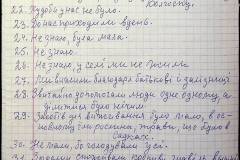 колгоспу.
22. Худоби у нас не було.
23. До нас приходили вдень.
24. Не знаю, була мала.
25. Не знаю.
26. Не знаю, у селі ми не жили.
27. Ми вижили благодаря батькові і залізниці
28. Звичайно допомагали люди одне одному, а
ділитися було нічим.
29. Засобів для виживання було мало, в ос-
новному рослини, трави, що було в
30. Не знали, бо голодували усі.
31.